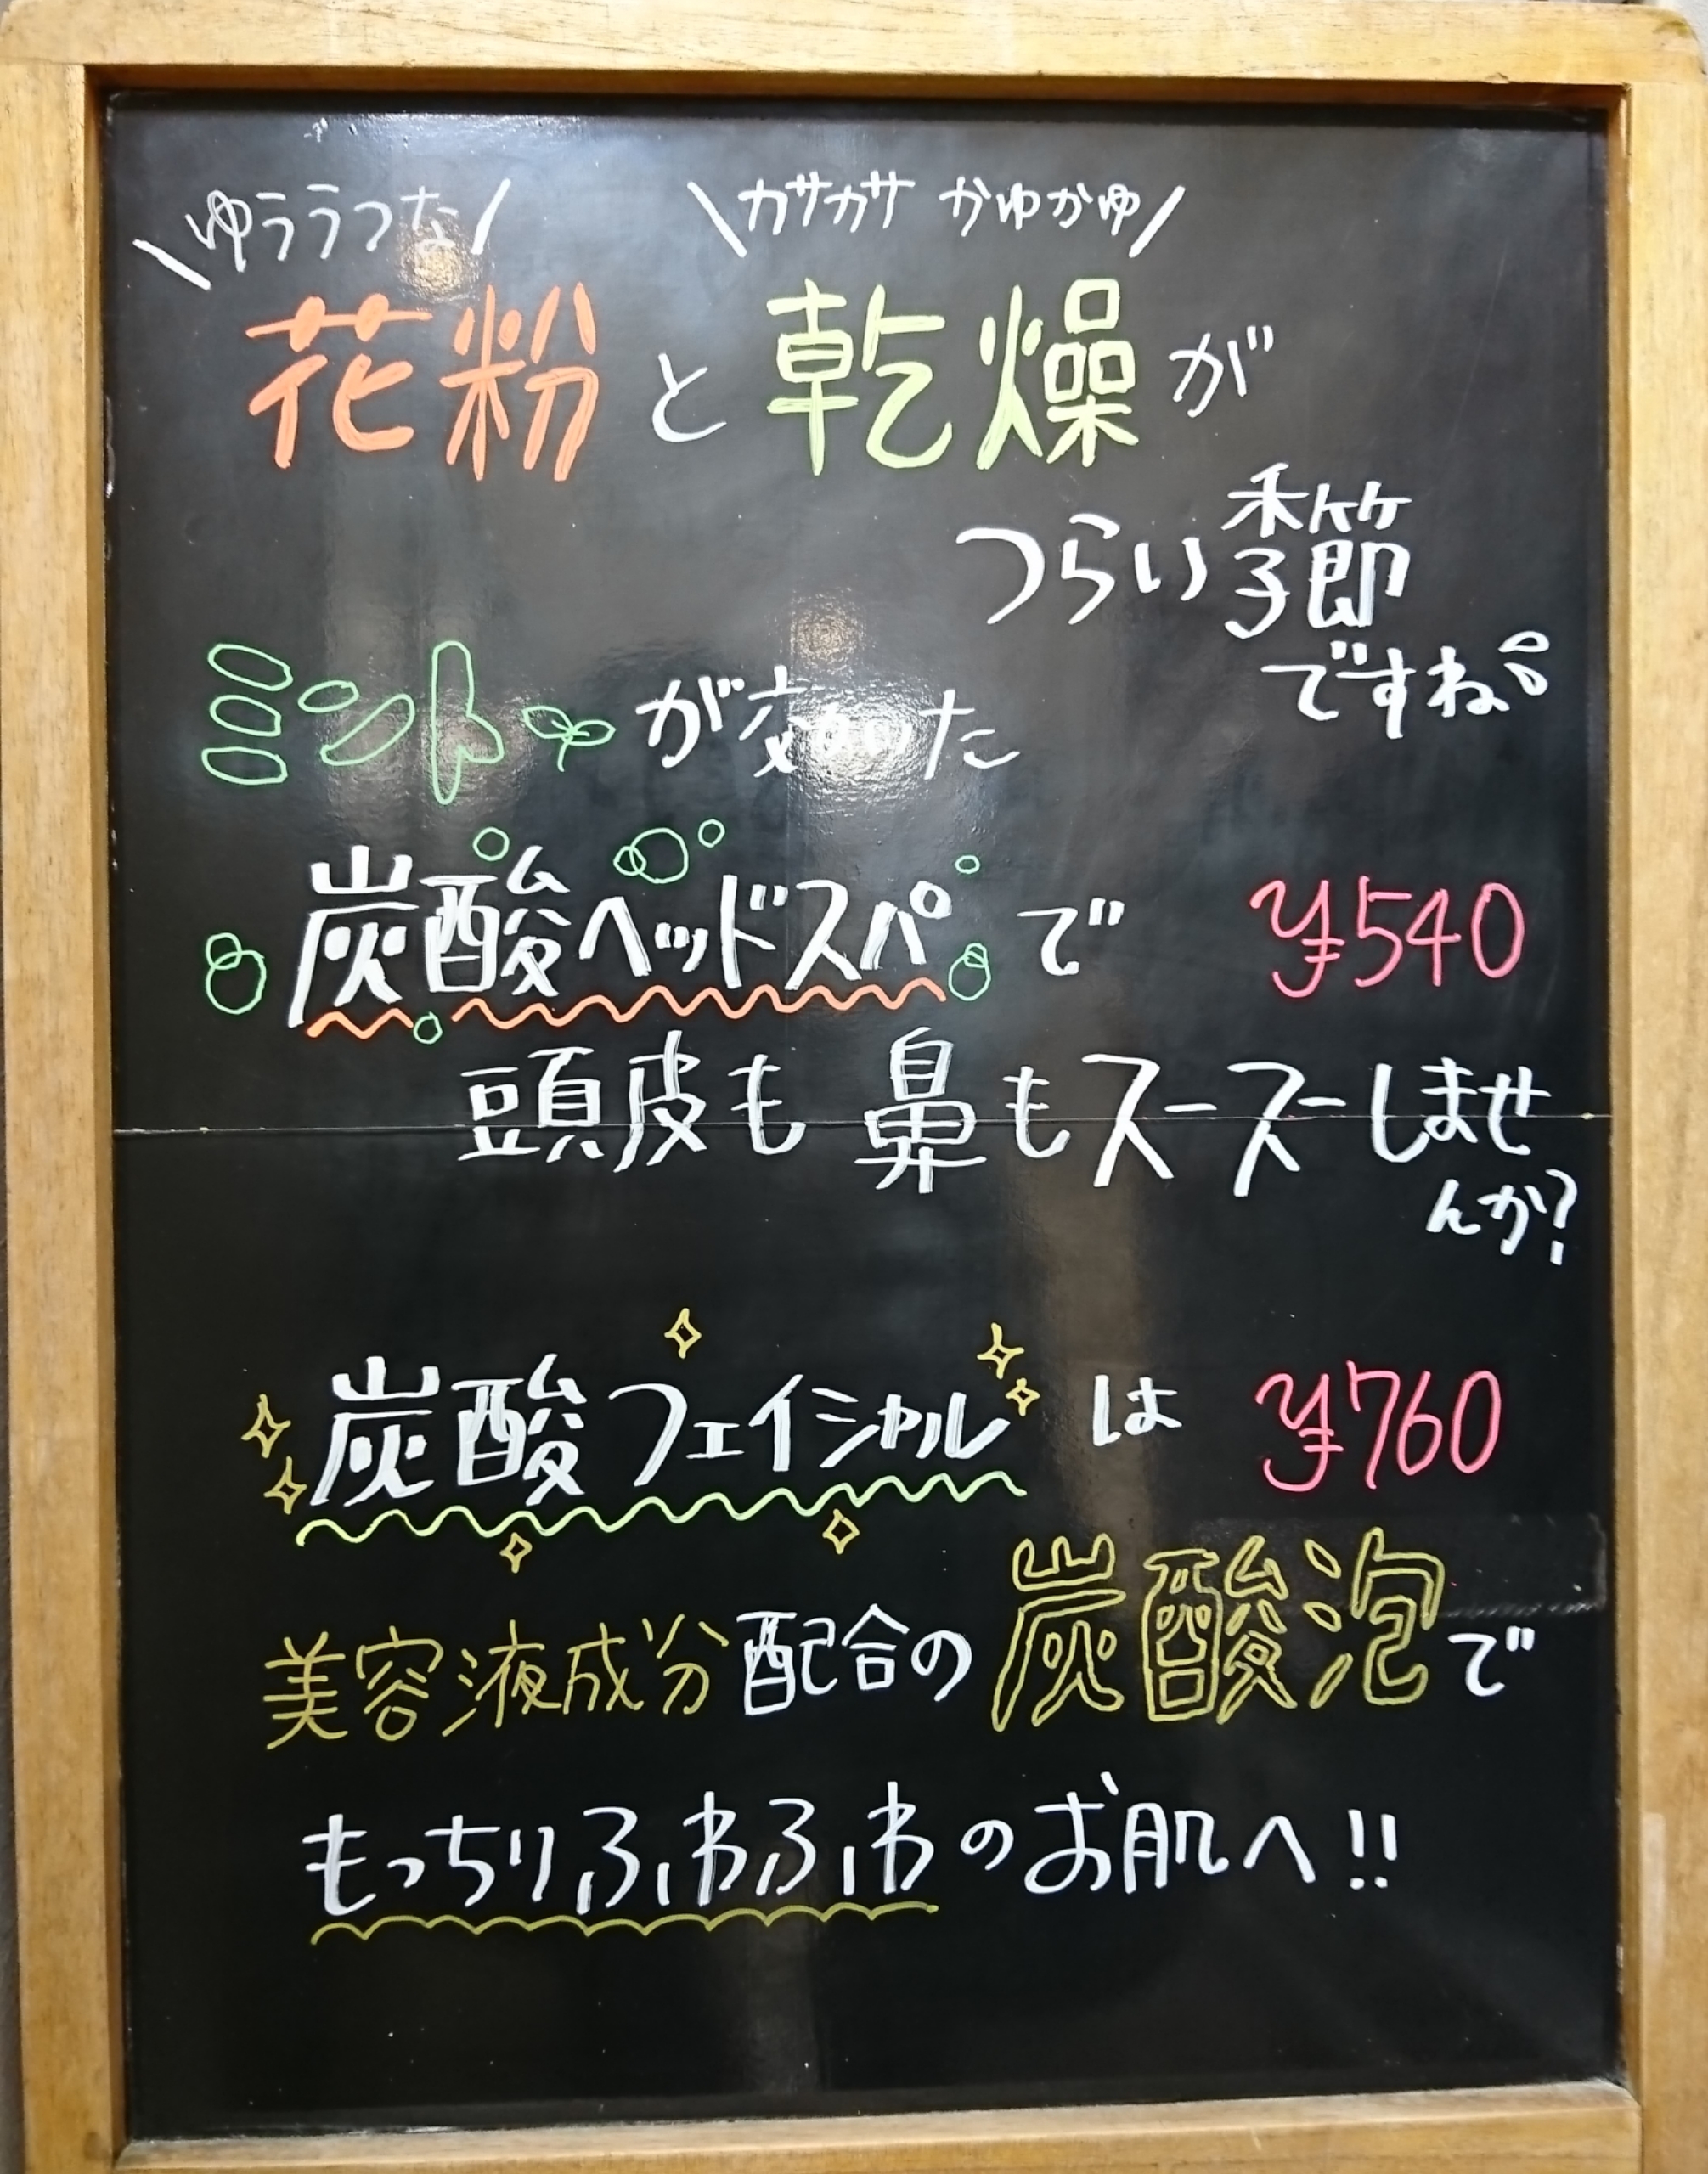 \ゆううつな/ \カサカサ かゆかゆ/
花粉と乾燥が
つらい季節
ですね
ミントが効いた
炭酸ヘッドスパで ¥540
頭皮も鼻もスースーしませ
んか?
炭酸フェイシャルは ¥760
美容液成分配合の炭酸泡で
もっちりふわふわのお肌へ!!